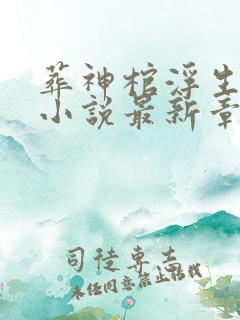 葬神棺浮生
小说最新章
司徒专武
未经同意禁止转载